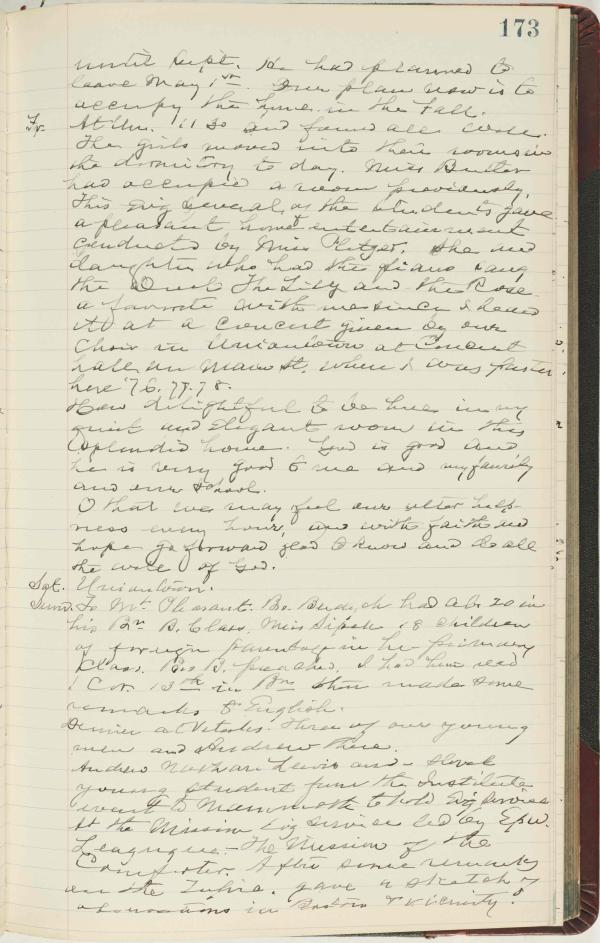 173
until Sept. He had planned to
leave May 1st. Our plan now is to
occupy the home in the Fall.
Fr. At Un. 11 30 and found all well.
The girls moved into their rooms in
the dormitory to day. Miss Butler
had occupied a room previously.
This Evg several of the students gave
a pleasant home entertainment
conducted by Miss She and
daughter who had the piano sang
the Duet The Lily and the Rose
a favorite with me since I heard
it at a concert given by our
Choir in Uniontown at Concert
hall on Main St. when I was pastor
here '76. 77. 78.
How delightful to be here in my
quiet and elegant room in this
splendid home. God is good and
he is very good to me and my family
and our school.
O that we may feel our utter help-
ness every hour, and with faith and
hope go forward glad to know and do all
the will of God.
Sat. Uniontown.
Sund. To Mt. Pleasant. Bro. had ab. 20 in
his Bn B. Class, Miss 18 children
of foreign parentage in her primary
Class. Bro B. preached. I had him read
1 Cor. 13th in Bn then made some
remarks in English.
Dinner at Three of our young
men and Andrew there.
Andrew Nathan Lewis and a Slovak
young student from the Institute
went to Mammoth to hold Evg service
At the Mission Evg service led by Epw.
League - The Mission of the
Comforter. After some remarks
on the gave a sketch of
in Boston & vicinity.